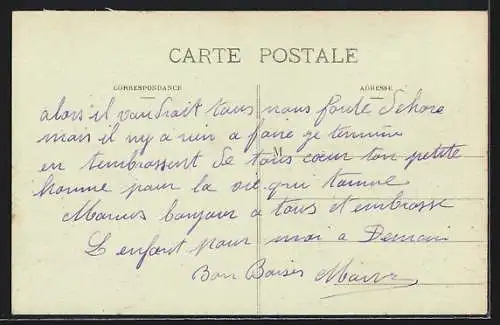 CARTE POSTALE
CORRESPONDANCE
ADRESSE
alors il vaudrait tous nous foute dehors
mais il ny a rien a faire ge termine
M
en tembrassent de tous cœur ton petite
homme pour la vie qui taime
Marius bonjour a tous et embrasse
L enfant pour moi a Demain
Bon Baises